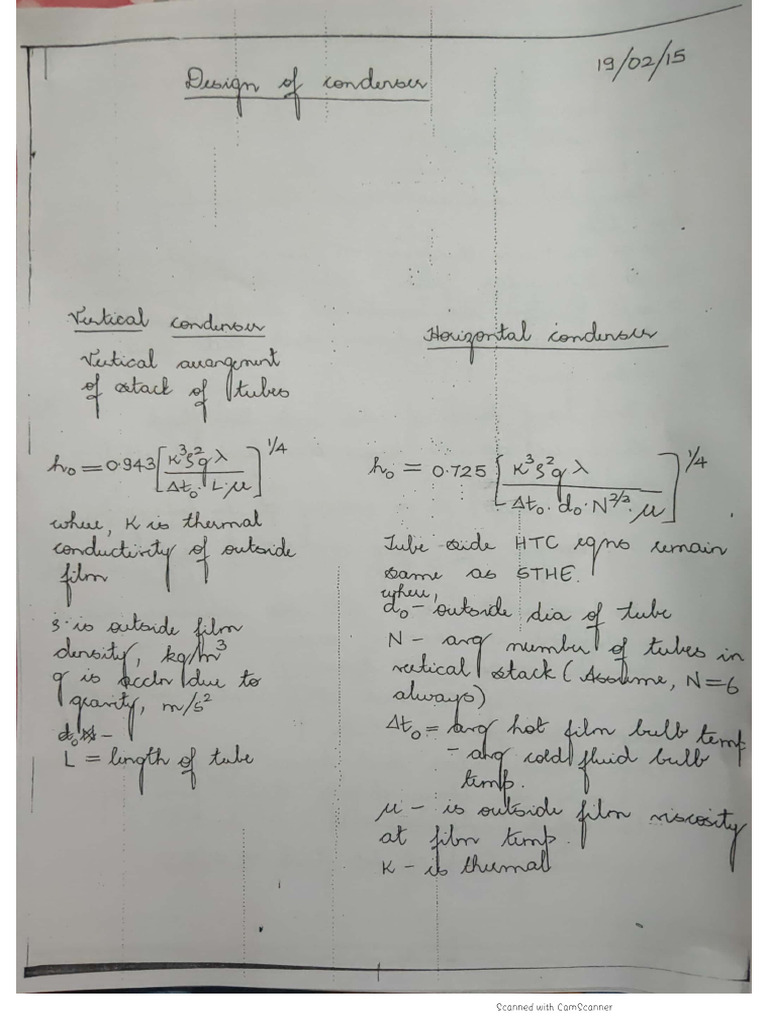 19/02/15
Design of condenser
Vertical condenser
Vertical arrangement
of stack of tubes
h₀ = 0.943 [K³ρ²gλ / Δt₀·L·μ]^1/4
where, K is thermal
conductivity of outside
film
ρ is outside film
density, kg/m³
g is accln due to
gravity, m/s²
d₀ -
L = length of tube
Horizontal condenser
h₀ = 0.725 [K³ρ²gλ / Δt₀·d₀·N^2/3·μ]^1/4
Tube side HTC eqns remain
same as STHE.
where,
d₀ - outside dia of tube
N - avg number of tubes in
vertical stack (Assume, N=6
always)
Δt₀ = avg hot film bulb temp
- avg cold fluid bulb
temp.
μ - is outside film viscosity
at film temp.
K - is thermal
Scanned with CamScanner